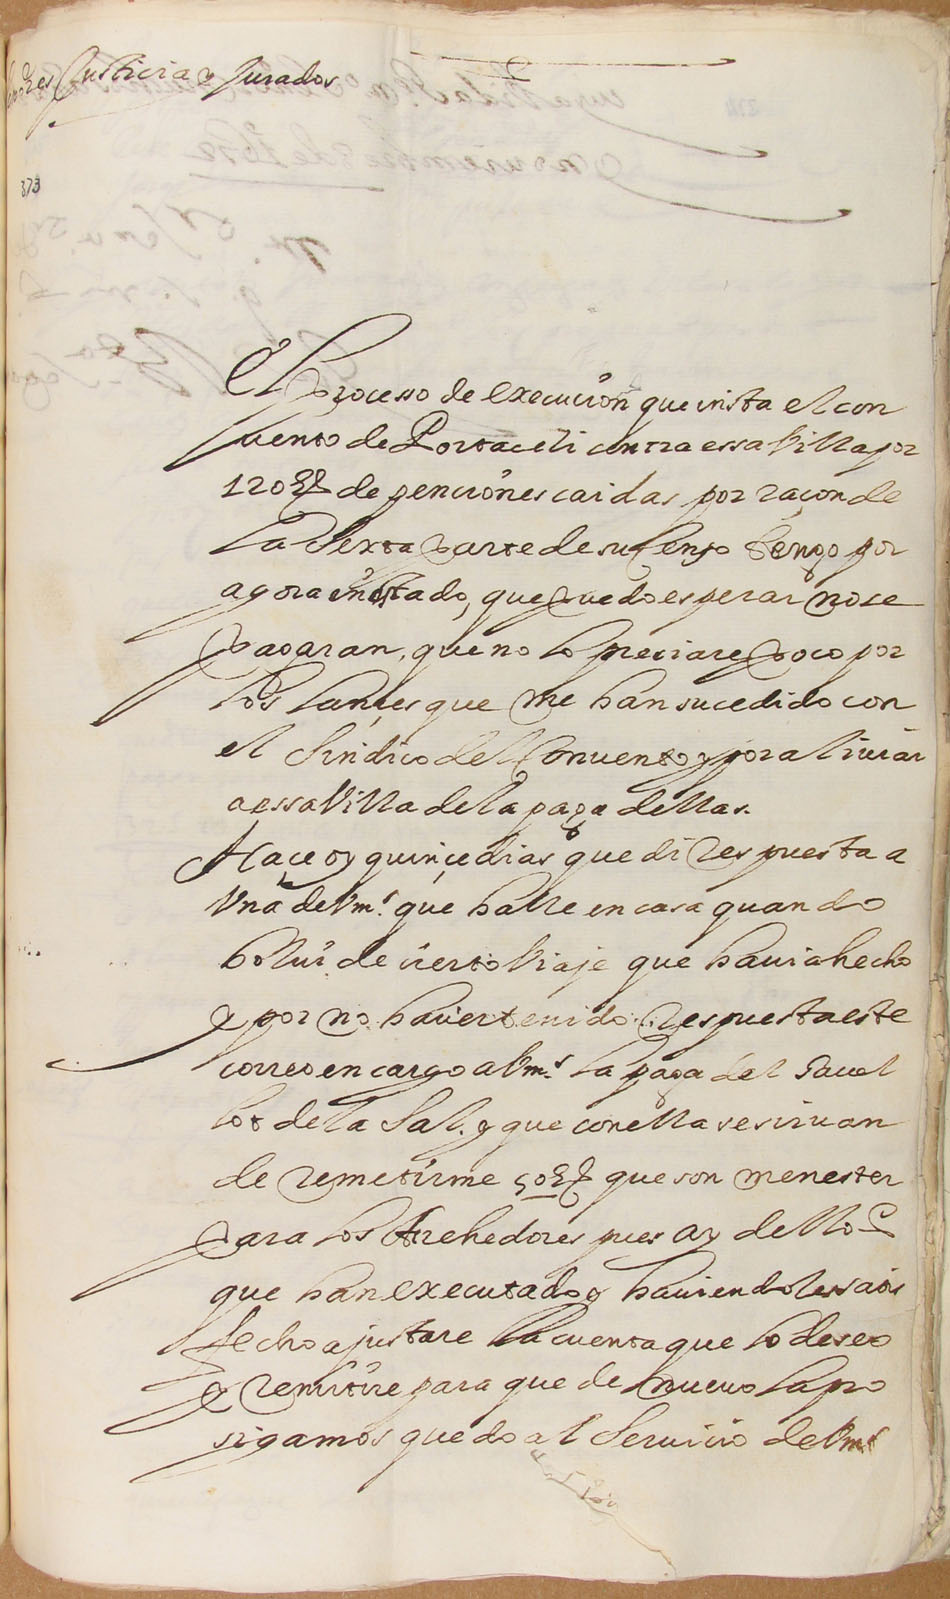 Señores Justicia y Jurados
373
El Proceso de execución que insta el con
uento de Portaceli contra essa Villa por
120 ℔ de penciones caidas por raçon de
la Sexta parte de su Censo tengo por
agora en estado, que puedo esperar no se
pagaran, que no lo preciare poco por
los lançes que me han sucedido con
el Sindico del Conuento y por aliuiar
a essa Villa de la paga dellas.
Haçe oy quinçe dias que di respuesta a
Vna de Vms. que halle en casa quando
bolui de cierto Viaje que hauia hecho
y por no hauer tenido respuesta este
correo encargo a Vms. la paga del
de la Sal. y que con ella se siruan
de remetirme 50 ℔ que son menester
para los Arehedores pues ay dellos
que han executado y hauiendo les satis
fecho ajustare la cuenta que lo deseo
y remitire para que de nueuo la pro
sigamos quedo al Seruicio de Vms